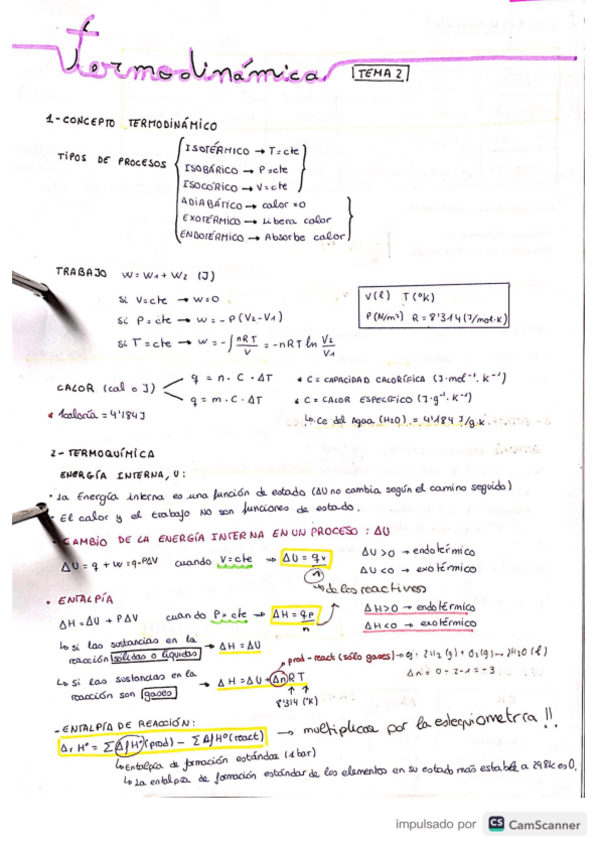 Termodinámica TEMA 2
1- CONCEPTO TERMODINÁMICO
TIPOS DE PROCESOS
ISOTÉRMICO → T = cte
ISOBÁRICO → P = cte
ISOCÓRICO → V = cte
ADIABÁTICO → calor = 0
EXOTÉRMICO → Libera calor
ENDOTÉRMICO → Absorbe calor
TRABAJO W = W1 + W2 (J)
si V = cte → W = 0
si P = cte → W = -P(V2-V1)
si T = cte → W = -∫ nRT/V = -nRT ln V2/V1
V(l) T(ºK)
P(N/m²) R = 8'314 (J/mol·K)
CALOR (cal o J)
q = n · C · ΔT * C = CAPACIDAD CALORÍFICA (J·mol⁻¹·K⁻¹)
q = m · C · ΔT * C = CALOR ESPECÍFICO (J·g⁻¹·K⁻¹)
* 1caloría = 4'184 J
↳ Ce del Agua (H2O) = 4'184 J/g·K
2- TERMOQUÍMICA
ENERGÍA INTERNA, U:
· La Energía interna es una función de estado (ΔU no cambia según el camino seguido)
· El calor y el trabajo NO son funciones de estado.
· CAMBIO DE LA ENERGÍA INTERNA EN UN PROCESO: ΔU
ΔU = q + W = q - PΔV cuando V = cte → ΔU = qv
n
ΔU > 0 → endotérmico
ΔU < 0 → exotérmico
↳ de los reactivos
· ENTALPÍA
ΔH = ΔU + PΔV cuando P = cte → ΔH = qp
n
ΔH > 0 → endotérmico
ΔH < 0 → exotérmico
↳ si las sustancias en la
reacción sólidas o líquidas → ΔH = ΔU
prod - react (sólo gases) → ej: 2H2(g) + O2(g) → 2H2O(l)
Δn = 0 - 2 - 1 = -3
↳ si las sustancias en la
reacción son gases → ΔH = ΔU + ΔnRT
8'314 (ºK)
- ENTALPÍA DE REACCIÓN:
Δr Hº = Σ Δf Hº (prod) - Σ Δf Hº (react) → multiplicar por la estequiometría !!
↳ Entalpía de formación estándar (1 bar)
↳ La entalpía de formación estándar de los elementos en su estado más estable a 298K es 0.
impulsado por CS CamScanner